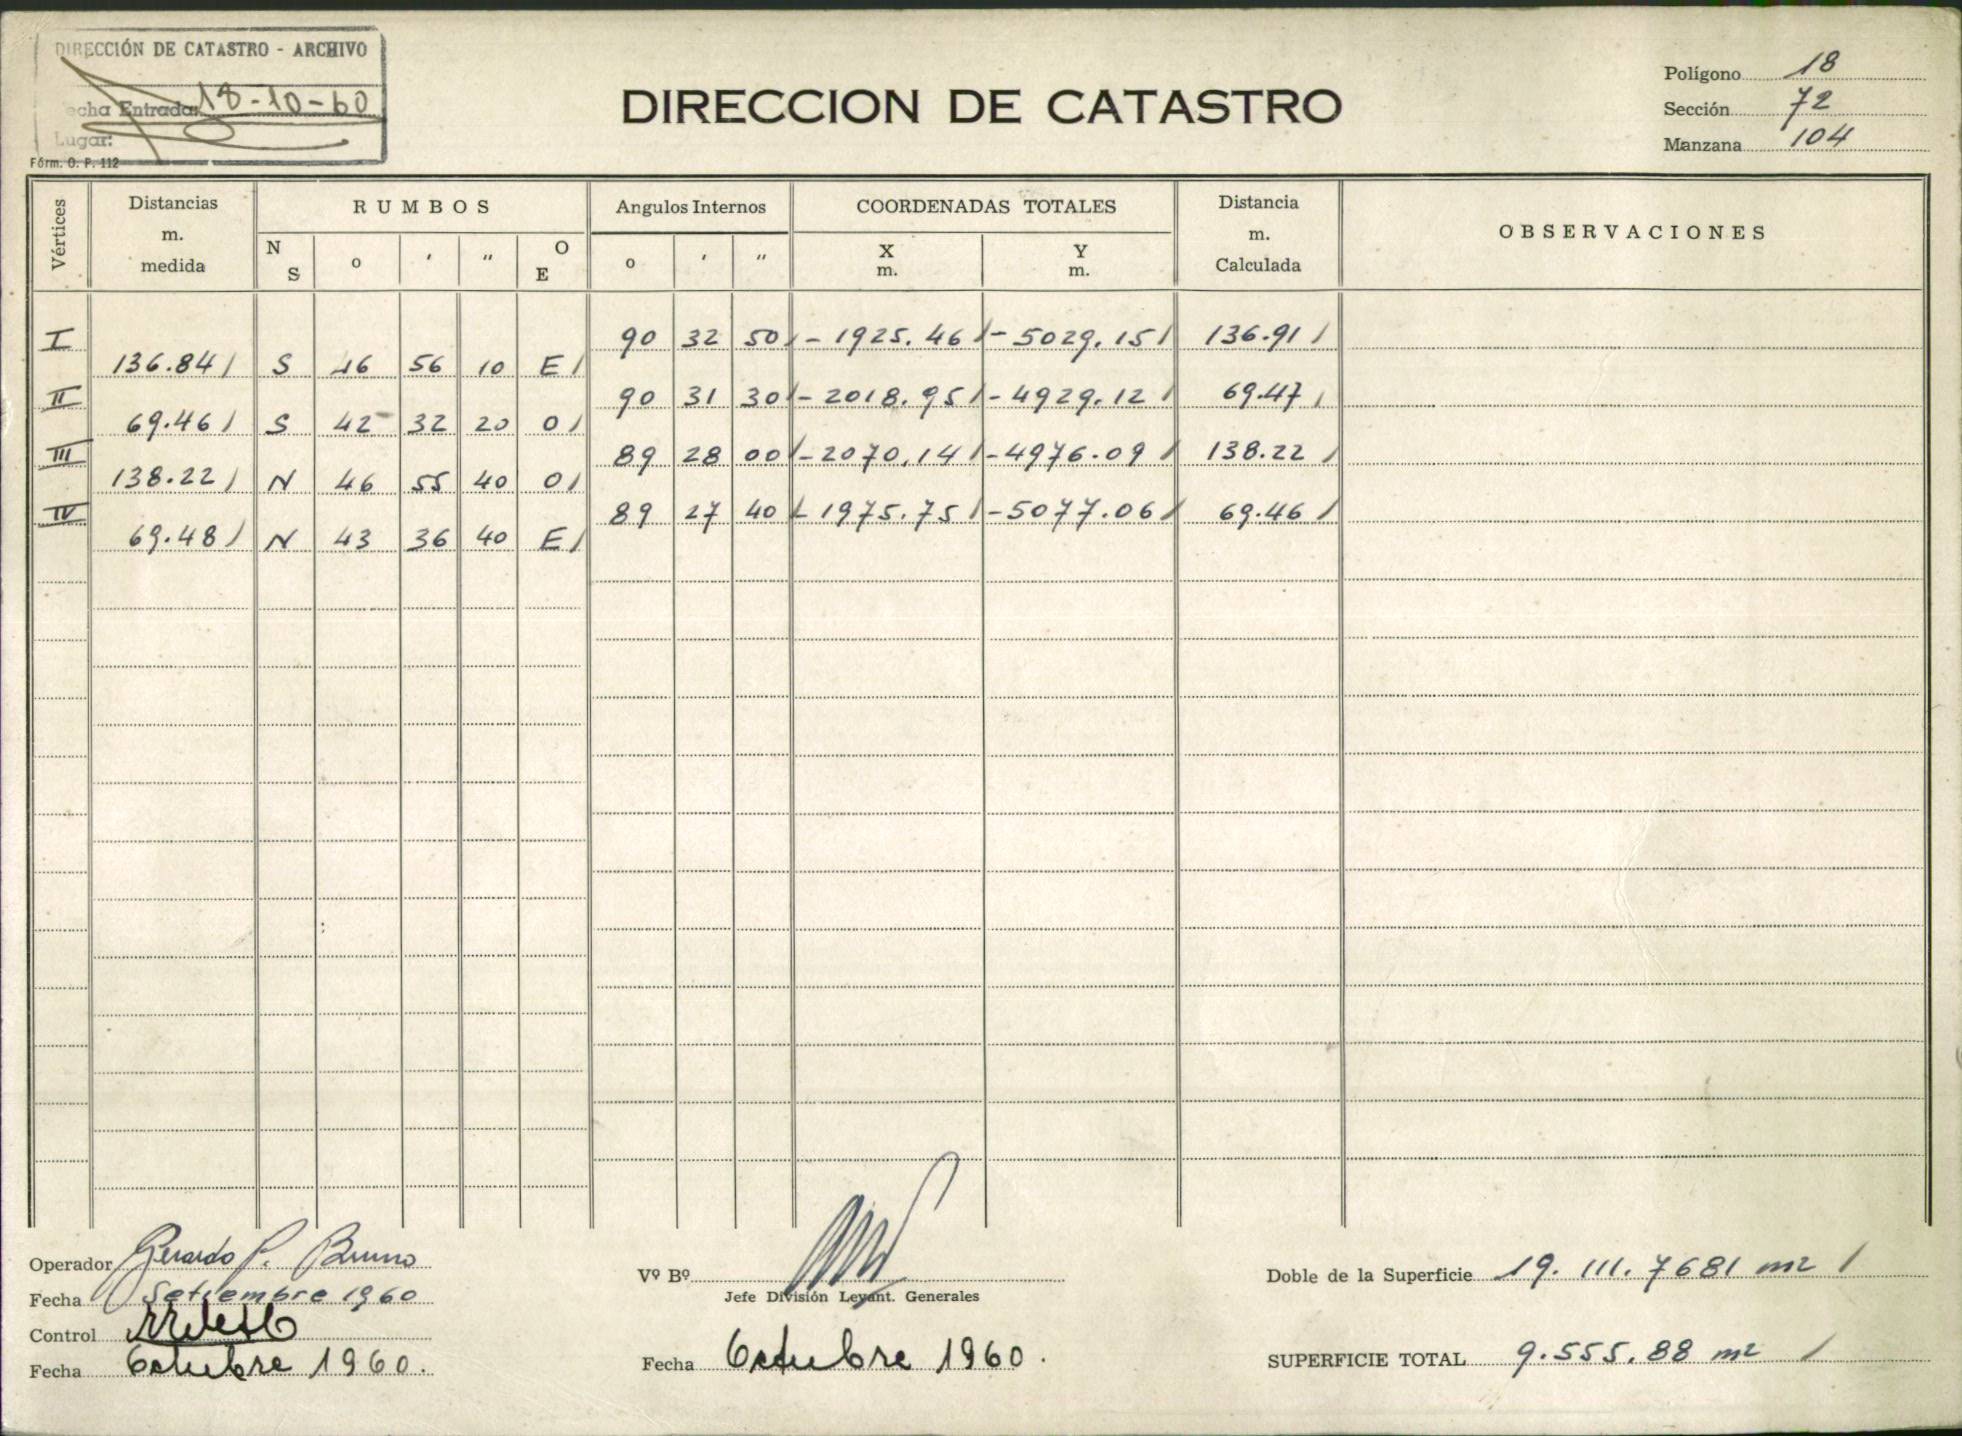 DIRECCIÓN DE CATASTRO - ARCHIVO
echa Entrada: 18-10-60
Lugar:
Fórm. O. P. 112
DIRECCION DE CATASTRO
Polígono 18
Sección 72
Manzana 104
Vértices
Distancias m. medida
RUMBOS
N S o ' " O E
Angulos Internos
o ' "
COORDENADAS TOTALES
X m. Y m.
Distancia m. Calculada
OBSERVACIONES
I 90 32 50 - 1925.46 - 5029.15 136.91
136.84 S 46 56 10 E
II 90 31 30 - 2018.95 - 4929.12 69.47
69.46 S 42 32 20 O
III 89 28 00 - 2070.14 - 4976.09 138.22
138.22 N 46 55 40 O
IV 89 27 40 - 1975.75 - 5077.06 69.46
69.48 N 43 36 40 E
Operador Gerardo P. Bruno
Fecha Setiembre 1960
Control
Fecha Octubre 1960.
Vº Bº
Jefe División Levant. Generales
Fecha Octubre 1960.
Doble de la Superficie 19.111.7681 m2
SUPERFICIE TOTAL 9.555.88 m2